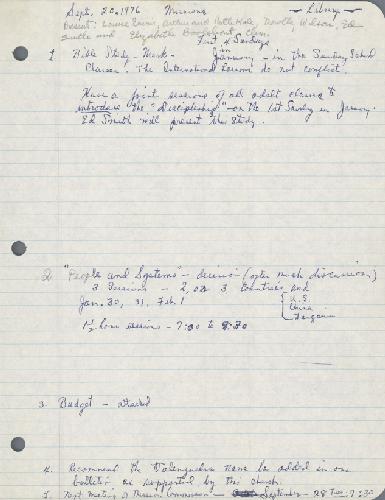 Sept. 20, 1976 Missions Library
Present: Louise Evans, Arthur and Nell Hale, Novella Wilson, Ed
Smith and Elizabeth chm.
First 4 Sundays
1. Bible Study - Mark - in January - in the Sunday School
Classes. The International Lessons do not conflict.
Have a joint sessions of all adult classes to
introduce the "Discipleship" - on the 1st Sunday in January.
Ed Smith will present the study.
2. "People and Systems" - (after much discussion)
3 Sessions - 2, or 3 Countries and
Jan. 30, 31, Feb. 1 U.S.
China
Tanzania
1½ hour session - 7:00 to 8:30
3. Budget - attached
4. Recommend the name be added in our
bulletin as supported by this church.
5. Next meeting of Mission Commission - September - 28 Tues. 7:30